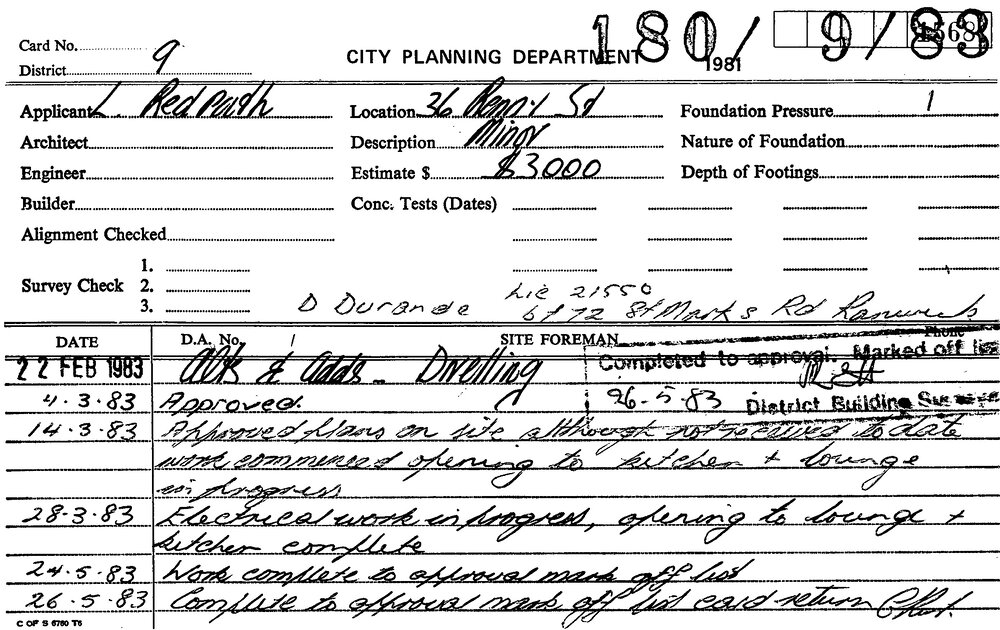 Card No. 180/ 9/83
District 9 CITY PLANNING DEPARTMENT 1981
Applicant L. Redpath Location 36 Renny St Foundation Pressure 1
Architect Description Minor Nature of Foundation
Engineer Estimate $ $3000 Depth of Footings
Builder Conc. Tests (Dates)
Alignment Checked
1.
Survey Check 2.
3. D Durande Lic 21550
6/72 St Marks Rd Ranwick
DATE D.A. No. SITE FOREMAN Phone
22 FEB 1983 Alts & Adds - Dwelling Completed to approval. Marked off list
4.3.83 Approved. 26-5-83 District Building
14.3.83 Approved plans on site although not received to date
work commenced opening to kitchen + lounge
in progress
28.3.83 Electrical work in progress, opening to lounge +
kitchen complete
24.5.83 Work complete to approval mark off list
26.5.83 Complete to approval mark off list card return
C OF S 6780 T6